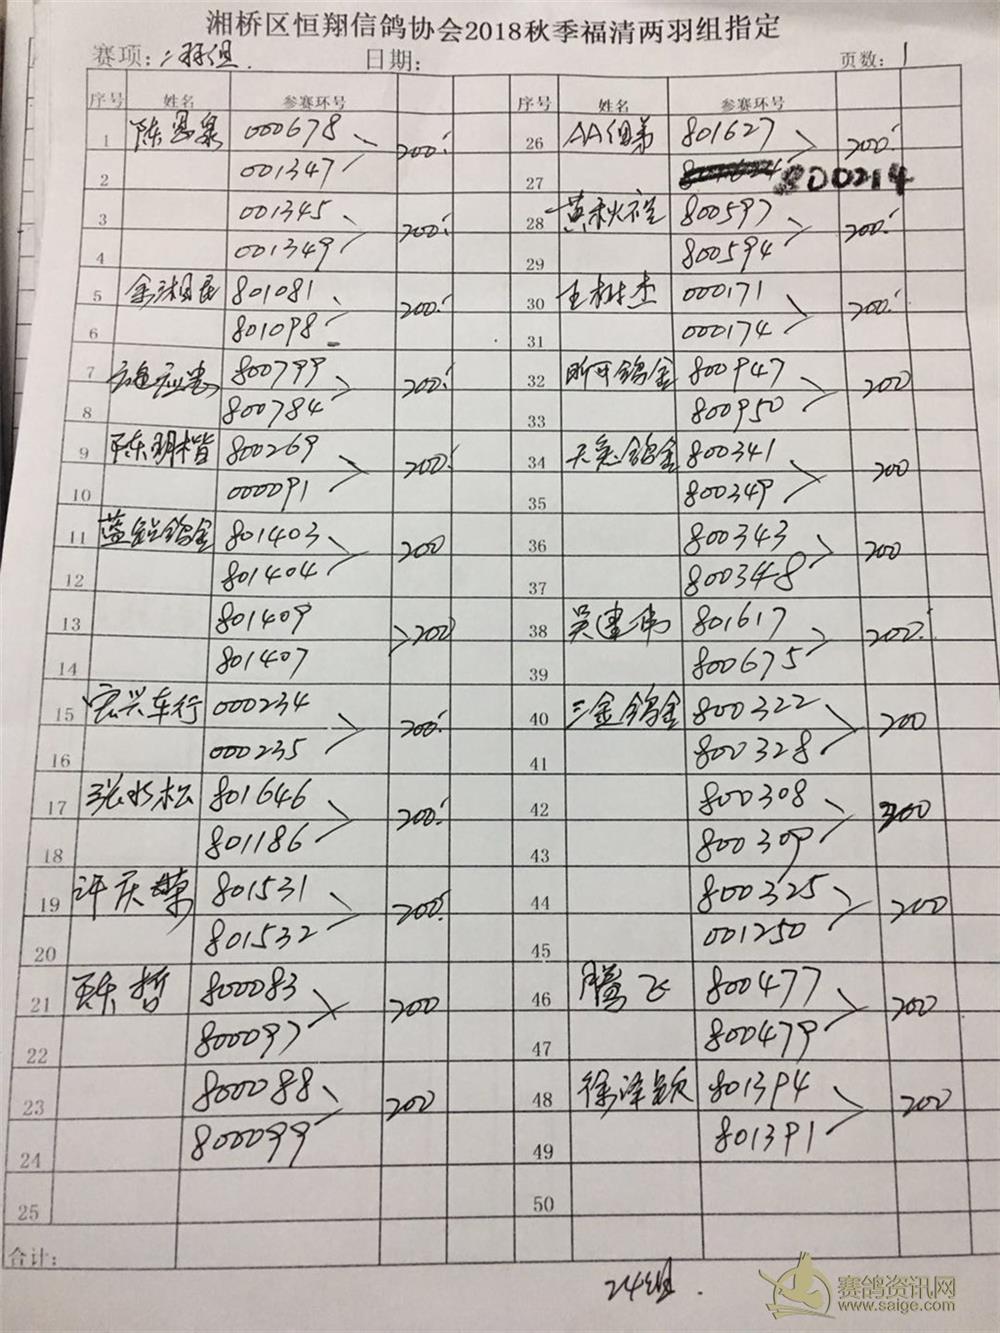 湘桥区恒翔信鸽协会2018秋季福清两羽组指定
赛项:二羽组. 日期: 页数: 1
序号 姓名 参赛环号 序号 姓名 参赛环号
1 000678 200 26 AA组弟 801627 200
2 001347 27 800214
3 001345 200 28 黄秋 800597 200
4 001349 29 800594
5 801081 200 30 王树杰 000171 200
6 801098 31 000174
7 800799 200 32 鸽舍 800947 200
8 800784 33 800950
9 陈明楷 800269 200 34 鸽舍 800341 200
10 000091 35 800349
11 鸽舍 801403 200 36 800343 200
12 801404 37 800348
13 801409 200 38 吴建伟 801617 200
14 801407 39 800675
15 宏兴车行 000234 200 40 三金鸽舍 800322 200
16 000235 41 800328
17 张水松 801646 200 42 800308 200
18 801186 43 800309
19 许庆荣 801531 200 44 800325 200
20 801532 45 001250
21 陈哲 800083 200 46 腾飞 800477 200
22 800097 47 800479
23 800088 200 48 徐泽颖 801394 200
24 800099 49 801391
25 50
合计:
24组.
赛鸽资讯网
www.saige.com